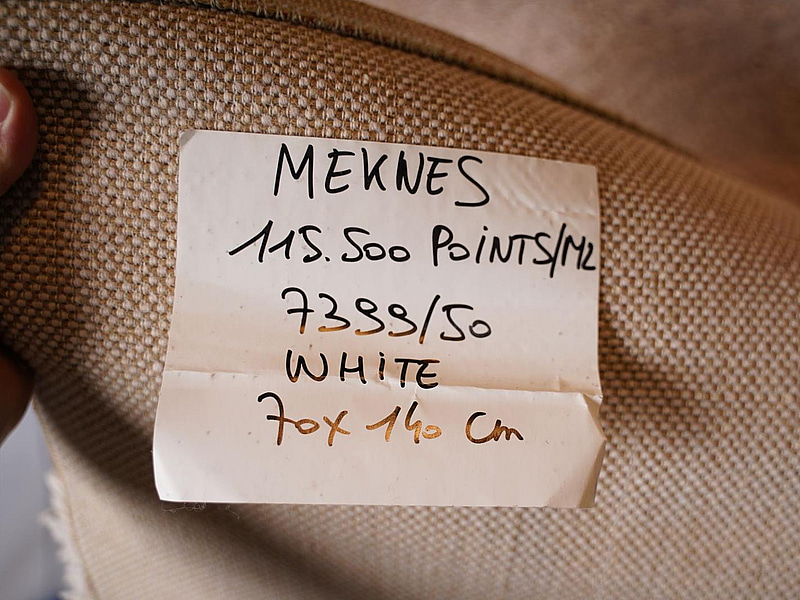 MEKNES
115.500 POiNTS/M2
7399/50
WHiTE
70x 140 Cm